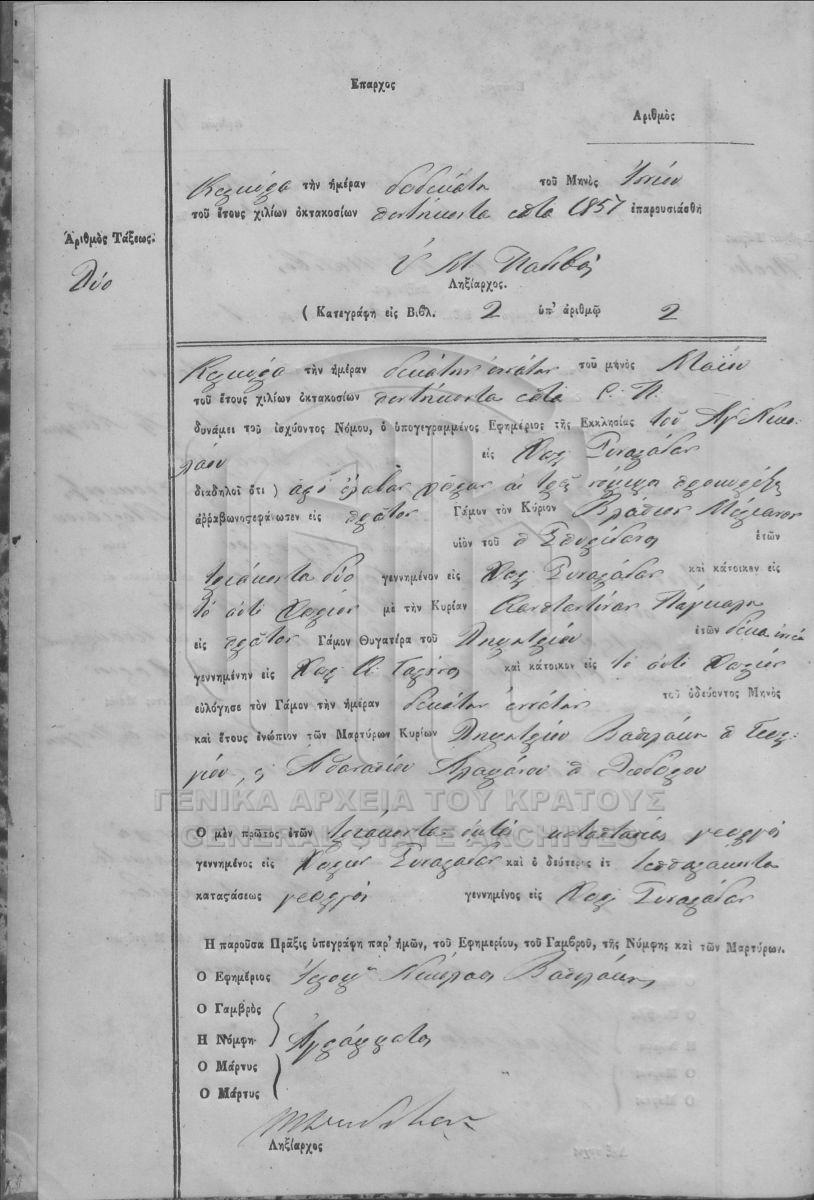 Επαρχος
Αριθμὸς
Κερκύρα τὴν ἡμέραν δωδεκάτη τοῦ Μηνὸς Ἰουνίου
τοῦ ἔτους χιλίων ὀκτακοσίων πεντήκοντα επτά 1857 ἐπαρουσιάσθη
Ἀριθμὸς Τάξεως.
Δύο
Ληξίαρχος.
( Κατεγράφη εἰς Βιβλ. 2 ὑπ' ἀριθμῷ 2
Κερκύρα τὴν ἡμέραν δεκάτην ἐννάτην τοῦ μηνὸς Μαΐου
τοῦ ἔτους χιλίων ὀκτακοσίων πεντήκοντα επτά Ε. Π.
δυνάμει τοῦ ἰσχύοντος Νόμου, ὁ ὑπογεγραμμένος Ἐφημέριος τῆς Ἐκκλησίας τοῦ Ἁγ Νικο
λάου εἰς Χωρ Συναράδων
διαδηλοῖ ὅτι ) ἀφ' οὗ ἔλαβον χώραν αἱ τρεῖς νόμιμαι προκηρύξεις
ἀῤῥαβωνοστεφάνωσεν εἰς πρῶτον Γάμον τὸν Κύριον
υἱὸν τοῦ π Σπυρίδωνος ἐτῶν
τριάκοντα δύο γεννημένον εἰς Χωρ Συναράδων καὶ κάτοικον εἰς
τὸ αὐτὸ Χωρίον μὲ τὴν Κυρίαν Κωνσταντίναν
εἰς πρῶτον Γάμον Θυγατέρα τοῦ Δημητρίου ἐτῶν δέκα
γεννημένην εἰς Χωρ καὶ κάτοικον εἰς τὸ αὐτὸ Χωρίον
εὐλόγησε τὸν Γάμον τὴν ἡμέραν δεκάτην ἐννάτην τοῦ ὁδεύοντος Μηνὸς
καὶ ἔτους ἐνώπιον τῶν Μαρτύρων Κυρίων Δημητρίου Βαρλάμη π Γεωρ
γίου, Ἀθανασίου π Θεοδώρου
ΓΕΝΙΚΑ ΑΡΧΕΙΑ ΤΟΥ ΚΡΑΤΟΥΣ
GENERAL STATE ARCHIVES
Ο μὲν πρῶτος ἐτῶν τριάκοντα ὀκτώ καταστάσεως γεωργός
γεννημένος εἰς Χωρίον Συναράδων καὶ ὁ δεύτερος ἐτ τεσσαράκοντα
καταστάσεως γεωργός γεννημένος εἰς Χωρ Συναράδων
Η παροῦσα Πρᾶξις ὑπεγράφη παρ' ἡμῶν, τοῦ Ἐφημερίου, τοῦ Γαμβροῦ, τῆς Νύμφης καὶ τῶν Μαρτύρων.
Ο Ἐφημέριος Ἱερεύς Νικόλαος Βαρλάμης
Ο Γαμβρὸς
Η Νύμφη Ἀγράμματοι
Ο Μάρτυς
Ο Μάρτυς
Ληξίαρχος